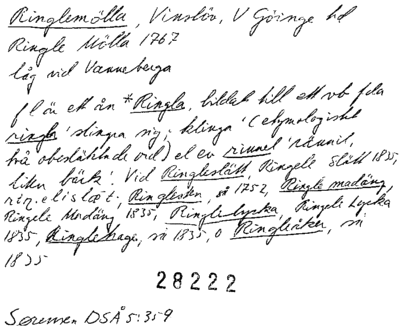 Ringlemölla, Vinslöv, V Göinge hd
Ringle Mölla 1767
låg vid Vanneberga
fl ön ett ån *Ringla, bildat till ett vb fda
ringla 'slingra sig; klinga' (etymologiskt
två obesläktade ord) el ev rinnel 'rännil,
liten bäck'. Vid Ringleslätt, Ringele Slätt 1835,
Ringlesten, så 1752, Ringle madäng,
Ringele Madäng 1835, Ringlelycka, Ringele Lycka
1835, Ringlehage, så 1835, o Ringleåker, så
1835
28222
Sørensen DSÅ 5:359